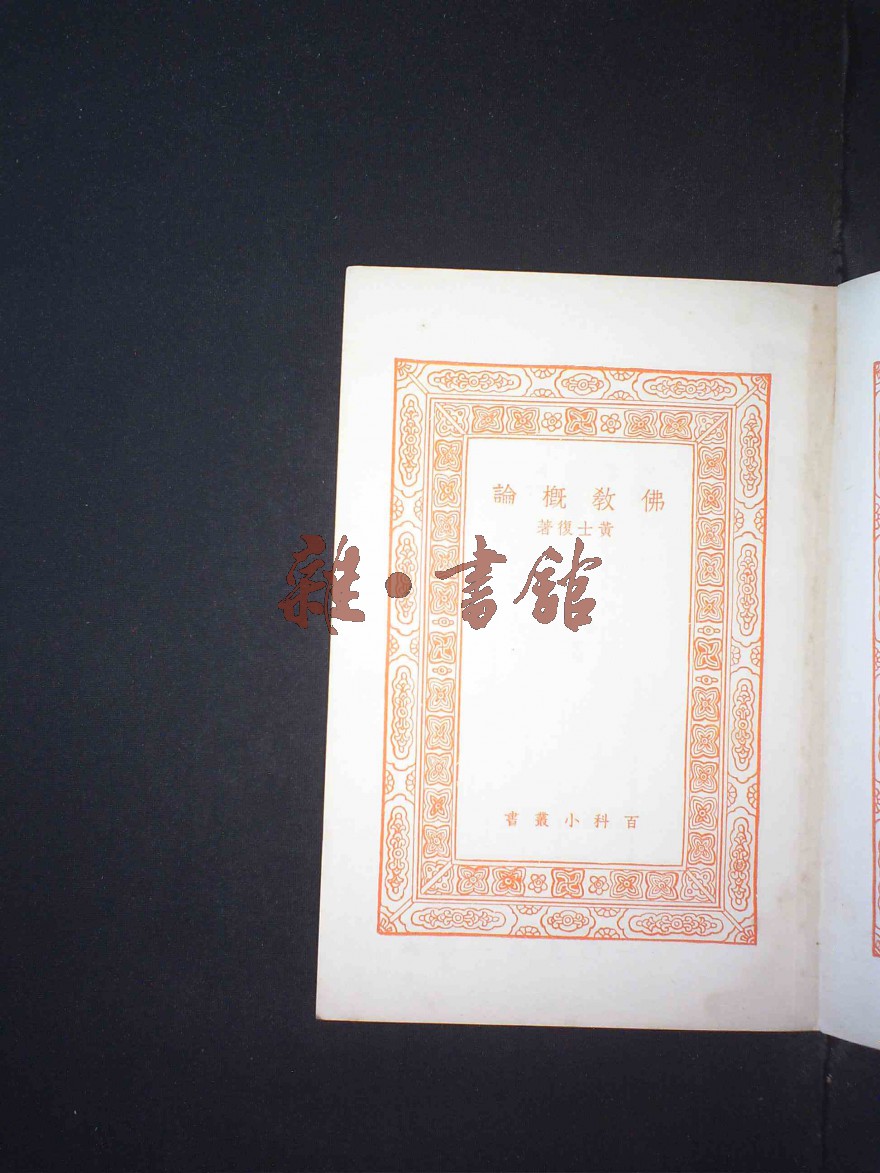 佛教概論
黃士復著
雜·書館
百科小叢書